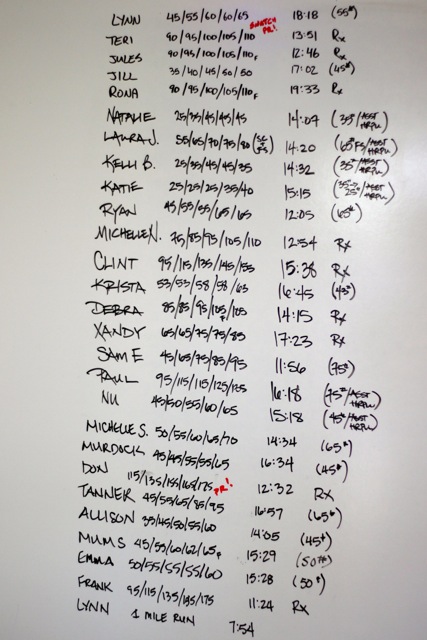 LYNN 45/55/60/60/65 18:18 (55#)
SNATCH PR!
TERI 90/95/100/105/110 13:51 Rx
JULES 90/95/100/105/110F 12:46 Rx
JILL 35/40/45/50/50 17:02 (45#)
RONA 90/95/100/105/110F 19:33 Rx
NATALIE 25/35/45/45/45 14:07 (35#/ASST HRPU)
LAURA J. 55/65/70/75/80 14:20 (65# FS/ASST HRPU)
KELLI B. 25/35/45/45/35 14:32 (35#/ASST HRPU)
KATIE 25/25/25/35/40 15:15 25#/ASST HRPU)
RYAN 45/55/55/65/65 12:05 (65#)
MICHELLE N. 75/85/95/105/110 12:54 Rx
CLINT 95/115/135/145/155 15:38 Rx
KRISTA 53/55/58/58/63 16:45 (43#)
DEBRA 85/85/95/105/105 14:15 Rx
XANDY 65/65/75/75/85 17:23 Rx
SAM E 45/65/75/85/95 11:56 (75#)
PAUL 95/115/115/125/125 16:18 (75#/ASST HRPU)
NU 45/50/55/60/65 15:18 (45#/ASST HRPU)
MICHELLE S. 50/55/60/65/70 14:34 (65#)
MURDOCK 45/45/55/55/65 16:34 (45#)
DON 115/135/155/165/175 PR! 12:32 RX
TANNER 45/55/65/85/95 16:57 (65#)
ALLISON 35/45/50/55/60 14:05 (45#)
MUMS 45/55/60/62/65F 15:29 (50#)
EMMA 50/55/55/55/60 15:28 (50#)
FRANK 95/115/135/185/175 11:24 Rx
LYNN 1 MILE RUN 7:54